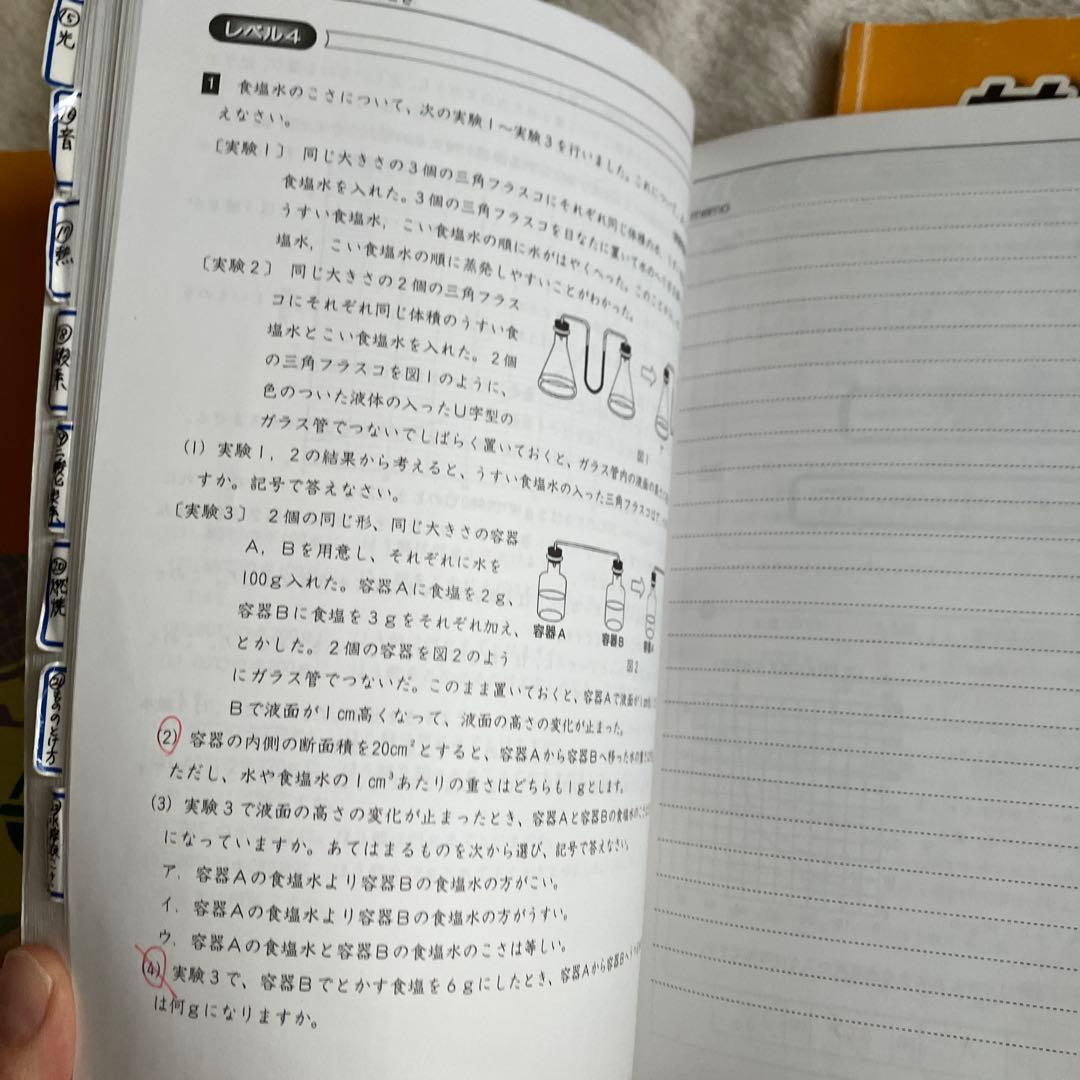 レベル4
1 食塩水のこさについて、次の実験1〜実験3を行いました。これについて、
えなさい。
〔実験1〕 同じ大きさの3個の三角フラスコにそれぞれ同じ体積の水、
食塩水を入れた。3個の三角フラスコを日なたに置いて水の
うすい食塩水，こい食塩水の順に水がはやくへった。このことから、
塩水，こい食塩水の順に蒸発しやすいことがわかった。
〔実験2〕 同じ大きさの2個の三角フラス
コにそれぞれ同じ体積のうすい食
塩水とこい食塩水を入れた。2個
の三角フラスコを図1のように、
色のついた液体の入ったU字型の
ガラス管でつないでしばらく置いておくと、ガラス管内の液面の高さ
図1
(1) 実験1，2の結果から考えると、うすい食塩水の入った三角フラスコは
すか。記号で答えなさい。
〔実験3〕 2個の同じ形、同じ大きさの容器
A，Bを用意し、それぞれに水を
100g入れた。容器Aに食塩を2g、
容器Bに食塩を3gをそれぞれ加え、
とかした。2個の容器を図2のよう
にガラス管でつないだ。このまま置いておくと、容器Aで液面が1cm
Bで液面が1cm高くなって、液面の高さの変化が止まった。
容器A
容器B
図2
(2) 容器の内側の断面積を20cm²とすると、容器Aから容器Bへ移った水の重さは
ただし、水や食塩水の1cm³あたりの重さはどちらも1gとします。
(3) 実験3で液面の高さの変化が止まったとき、容器Aと容器Bの食塩水のこさは
になっていますか。あてはまるものを次から選び、記号で答えなさい。
ア．容器Aの食塩水より容器Bの食塩水の方がこい。
イ．容器Aの食塩水より容器Bの食塩水の方がうすい。
ウ．容器Aの食塩水と容器Bの食塩水のこさは等しい。
(4) 実験3で、容器Bでとかす食塩を6gにしたとき、容器Aから容器Bへ
は何gになりますか。
memo
⑮光
⑯音
⑰熱
⑳燃焼
㉑ものとけ方